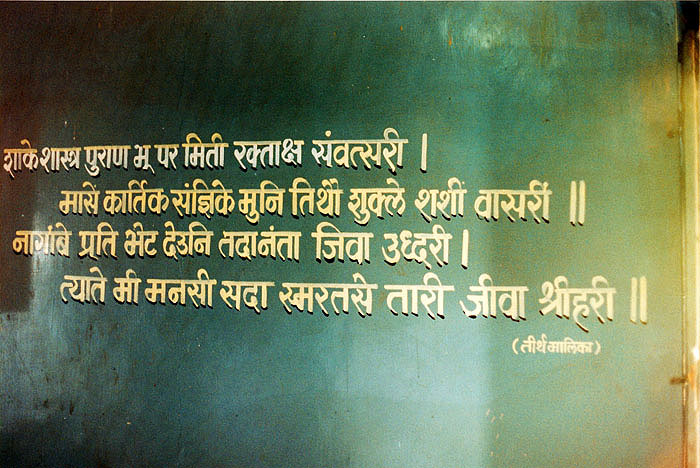 शाके शास्त्र पुराण भू पर मिती रक्ताक्ष संवत्सरी ।
मासें कार्तिक संज्ञिके मुनि तिथौ शुक्ले शशीं वासरीं ॥
नागांबे प्रति भेट देउनि तदानंता जिवा उध्दरी ।
त्याते मी मनसी सदा स्मरतसे तारी जीवा श्रीहरी ॥
(तीर्थमालिका)